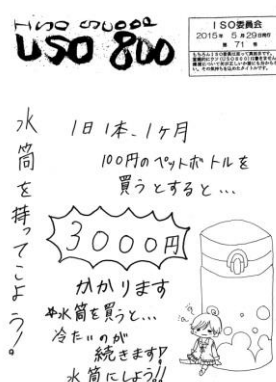 ISO SUUPA
USO 800
ISO委員会
2015年 5月29日発行
第 71 号
水筒を持ってこよう!
1日1本、1ヶ月
100円のペットボトルを
買うとすると…
3000円
かかります
水筒を買うと…
冷たいのが
続きます!!
水筒にしよう!!